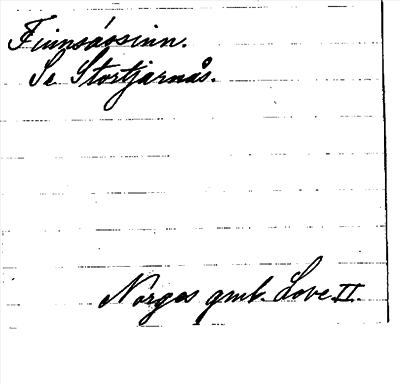 Finnsåssinn.
Se Stortjarnås.
Norges gml. Love II.